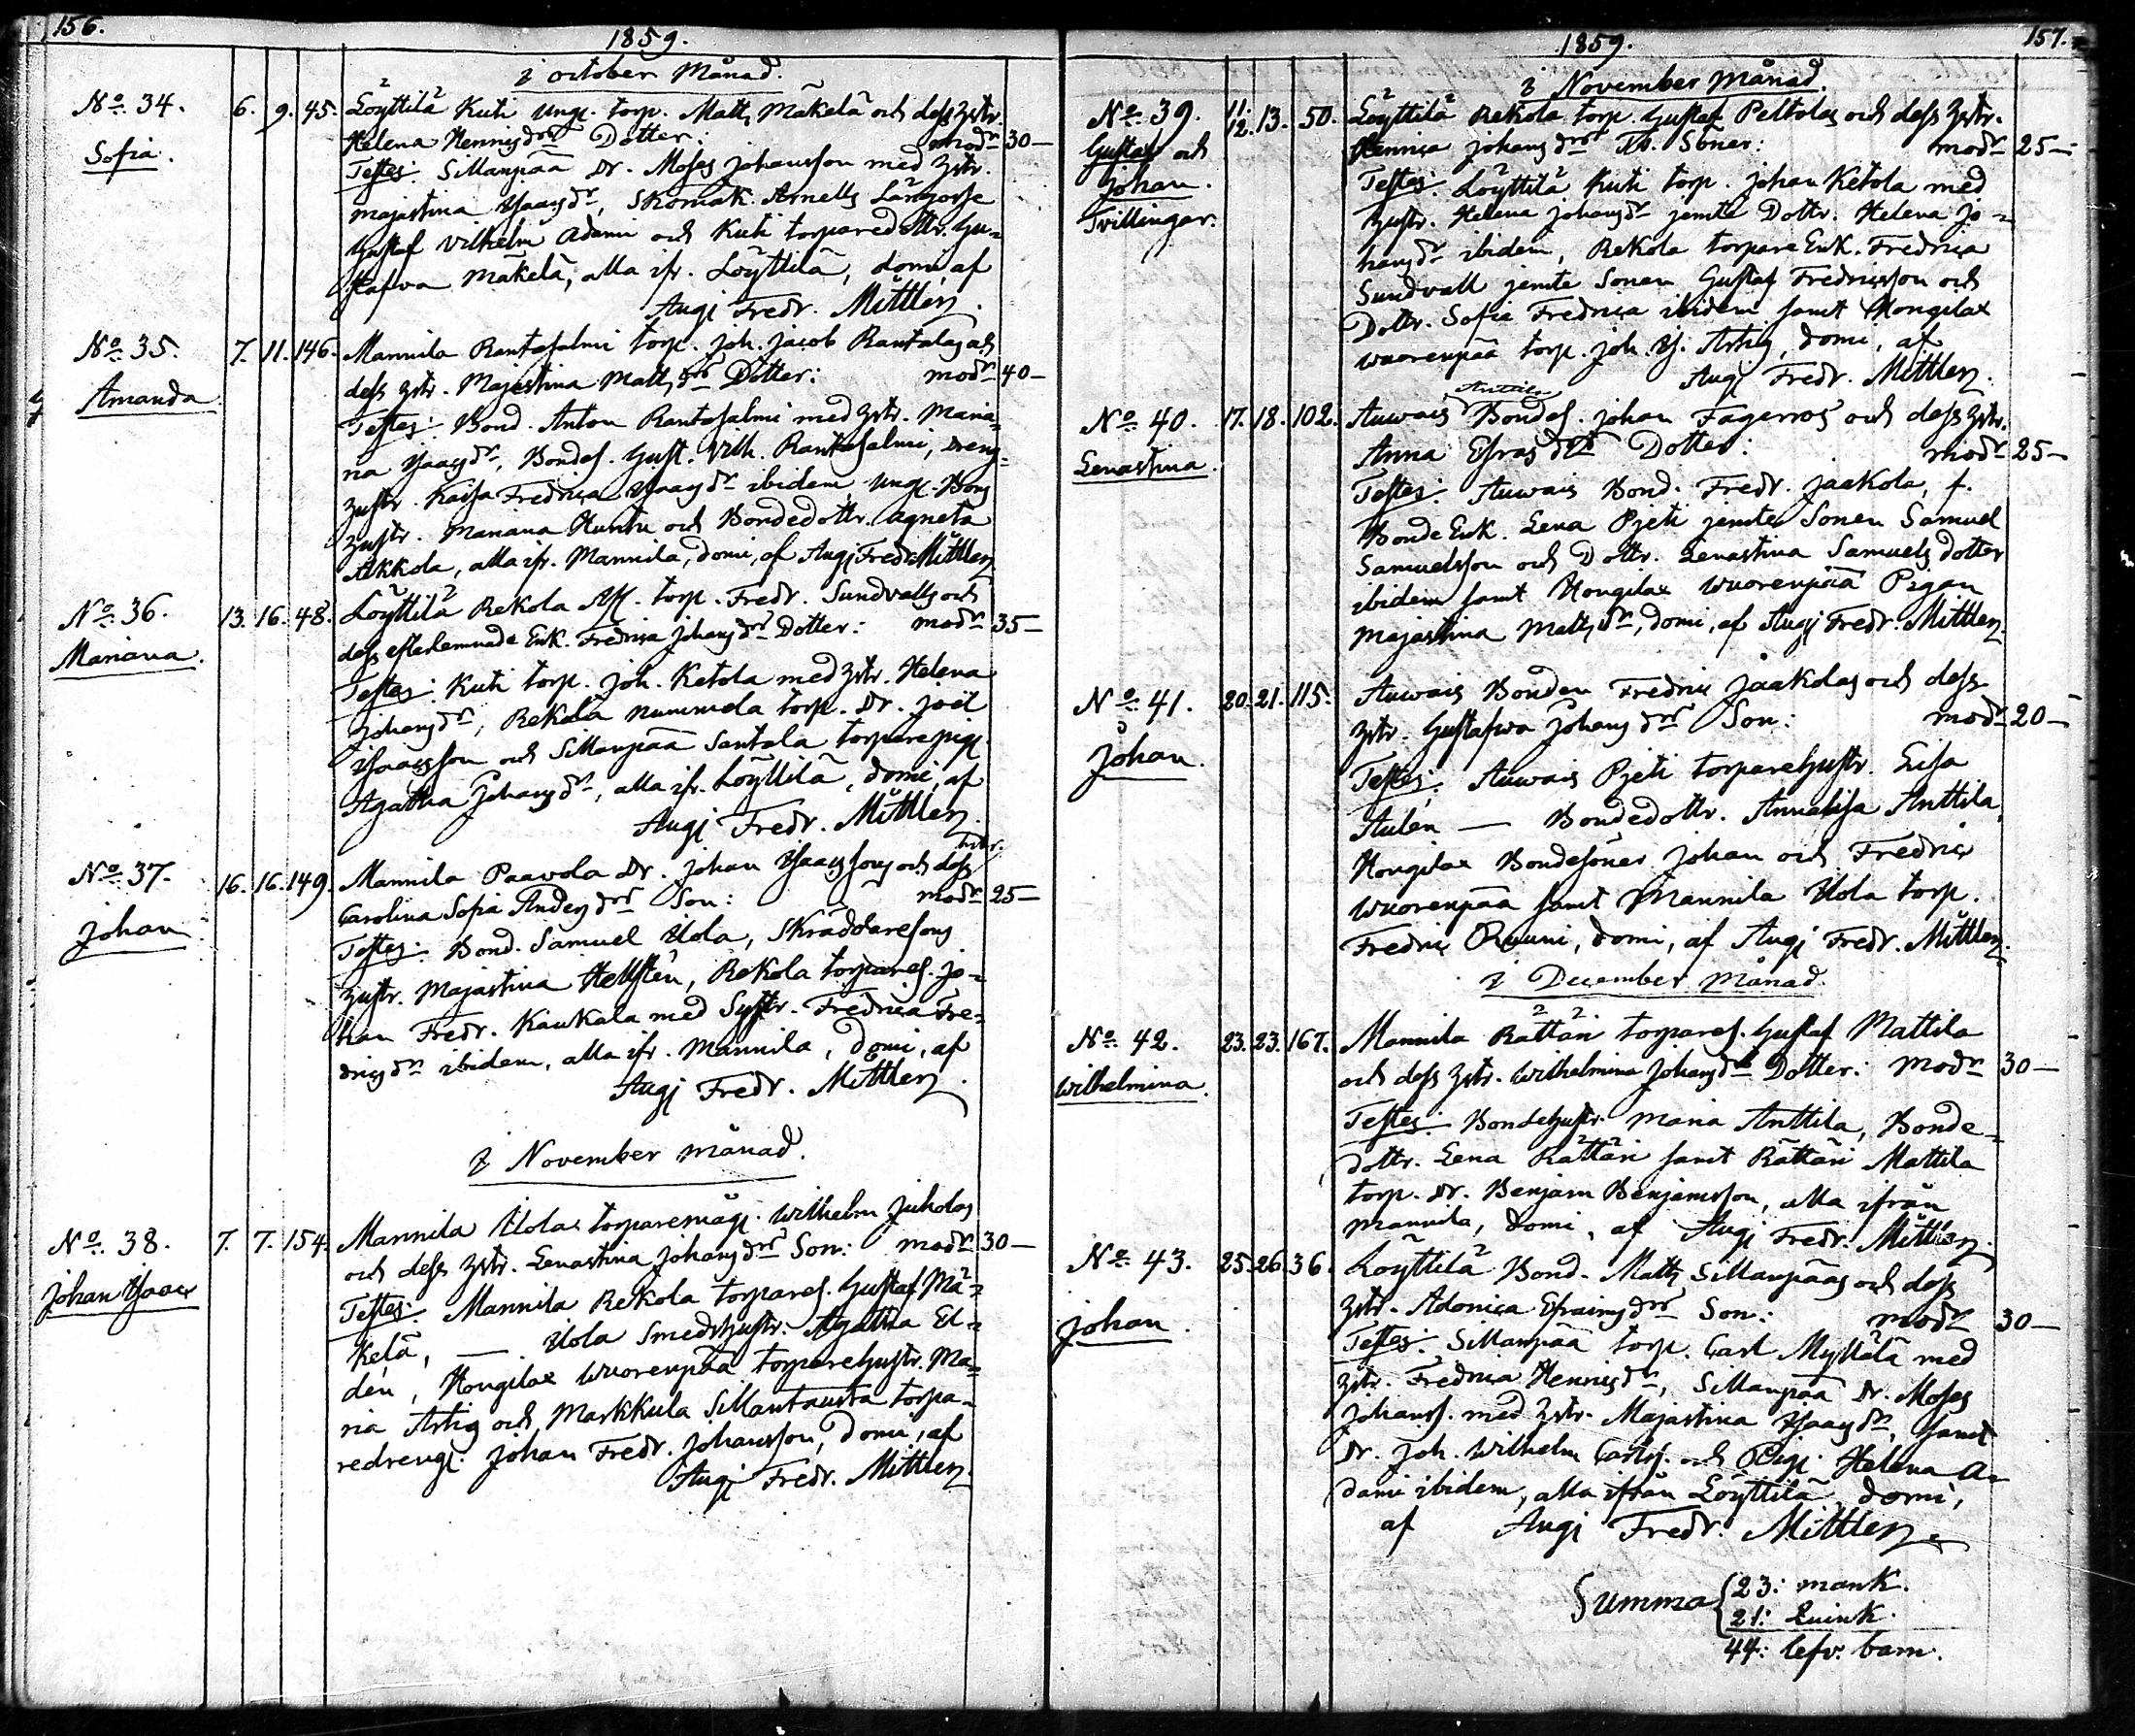 156.
1859.
i october Månad.
No 34. 6. 9. 45. Löyttilä Kuti ung. torp. Matts Mäkelä och dess hstr.
Sofia. Helena Henrics dr Dotter: modr 30—
Testes: Sillanpää Dr. Moses Johansson med hstr.
Majastina Isaacs dr, Skomak. Arnells Lärgosse
Gustaf Vilhelm Adami och Kuti torparedottr. Gu-
stafva Mäkelä, alla ifr. Löyttilä, domi, af
Augi Fredr. Mittler.
No 35. 7. 11. 146. Mannila Rantasalmi torp. Joh. Jacob Rantalas och
Amanda dess hstr. Majastina Matts dr Dotter: modr 40—
Testes: Bond. Anton Rantasalmi med hstr. Maria-
na Isaacs dr, Bondes. Gust. Vilh. Rantasalmi, Dreng-
hustr. Kaisa Fredrica Isaacs dr ibidem, ung. Bons
hustr. Mariana Huntu och Bondedottr. Agneta
Akkola, alla ifr. Mannila, domi, af Augi Fredr. Mittler
No 36. 13. 16. 48. Löyttilä Rekola Afl. torp. Fredr. Sundvalls och
Mariana. dess efterlemnade Enk. Fredrica Johans dr Dotter: modr 35—
Testes: Kuti torp. Joh. Ketola med hstr. Helena
Johans dr, Rekola Nummela torp. Dr. Joël
Isaacsson och Sillanpää Santala torparepig.
Agatha Johans dr, alla ifr. Löyttilä, domi, af
Augi Fredr. Mittler.
No 37. 16. 16. 149. Mannila Paavola Dr. Johan Isaacssons och dess hstr.
Johan Carolina Sofia Anders dr Son: modr 25—
Testes: Bond. Samuel Uola, Skräddaresons
hustr. Majastina Hellstén, Rekola torpares. Jo-
han Fredr. Kaukala med Systr. Fredrica Fre-
drics dr ibidem, alla ifr. Mannila, domi, af
Augi Fredr. Mittler.
i November månad.
No 38. 7. 7. 154. Mannila Uola torparemåg. Wilhelm Juholas
Johan Isaac och dess hstr. Lenastina Johans dr Son: modr 30—
Testes: Mannila Rekola torpares. Gustaf Mä-
kelä, — Uola Smedshustr. Agatha El-
dén, Hongilax Wuorenpää torparehustr. Ma-
ria Artig och Markkula Sillantausta torpa-
redreng: Johan Fredr. Johansson, domi, af
Augi Fredr. Mittler.
157.
1859.
i November Månad.
No 39. 11. 12. 13. 50. Löyttilä Rekola torp. Gustaf Peltolas och dess hstr.
Gustaf och Johan. Tvillingar. Henrica Johans dr Tv. Söner: modr 25—
Testes: Löyttilä Kuti torp. Johan Ketola med
hustr. Helena Johans dr jemte Dottr. Helena Jo-
hans dr ibidem, Rekola torpare Enk. Fredrica
Sundvall jemte Sonen Gustaf Fredricsson och
Dottr. Sofia Fredrica ibidem samt Hongilax
Wuorenpää torp. Joh. Is. Artig, domi, af
Augi Fredr. Mittler.
No 40. 17. 18. 102. Auwais Anttila Bondes. Johan Fagerros och dess hstr.
Lenastina. Anna Esras dr Dotter: modr 25—
Testes: Auwais Bond. Fredr. Jaakola, f.
Bonde Enk. Lena Pjeti jemte Sonen Samuel
Samuelsson och Dottr. Lenastina Samuels dotter
ibidem samt Hongilax Wuorenpää Pigan
Majastina Matts dr, domi, af Augi Fredr. Mittler.
No 41. 20. 21. 115. Auwais Bonden Fredric Jaakolas och dess
Johan. hstr. Gustafwa Johans dr Son: modr 20—
Testes: Auwais Pjeti torparehustr. Lisa
Aulén — Bondedottr. Annalisa Anttila,
Hongilax Bondesöner Johan och Fredric
Wuorenpää samt Mannila Uola torp.
Fredric Ruuni, domi, af Augi Fredr. Mittler.
i December månad.
No 42. 23. 23. 167. Mannila Rättäri torpares. Gustaf Mattila
Wilhelmina. och dess hstr. Wilhelmina Johans dr Dotter: Modr 30—
Testes: Bondehustr. Maria Anttila, Bonde-
dottr. Lena Rättäri samt Rättäri Mattila
torp. Dr. Benjam Benjamsson, alla ifrån
Mannila, domi, af Augi Fredr. Mittler.
No 43. 25. 26. 36. Löyttilä Bond. Matts Sillanpääs och dess
Johan. hstr. Adonica Efraims dr Son: modr 30—
Testes: Sillanpää torp. Carl Myllälä med
hstr. Fredrica Henrics dr, Sillanpää Dr. Moses
Johanss. med hstr. Majastina Isaacs dr, samt
Dr. Joh. Wilhelm Carlss. och Pig. Helena A-
dami ibidem, alla ifrån Löyttilä, domi,
af Augi Fredr. Mittler.
Summa { 23: mank.
21: Quink.
44: lefv. barn.